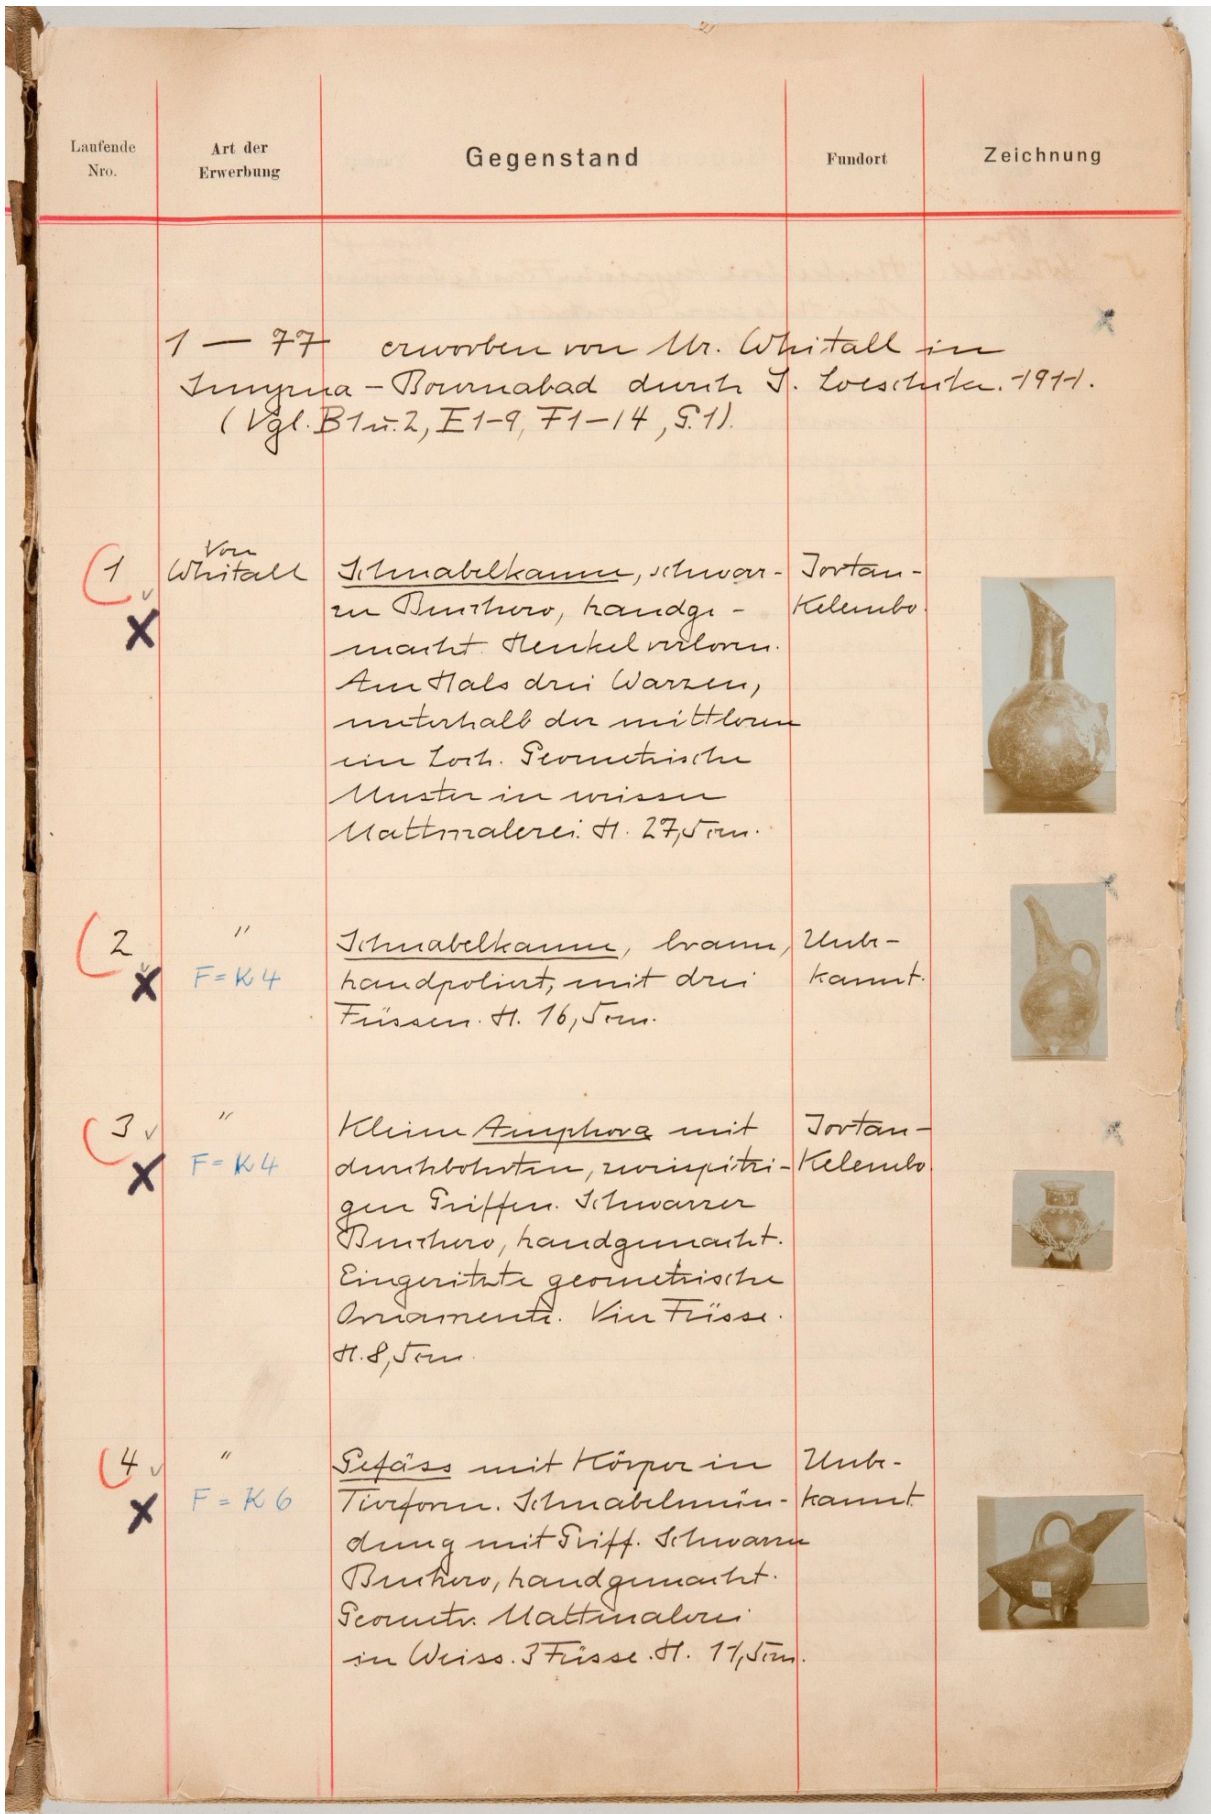 Laufende Nro.
Art der Erwerbung
Gegenstand
Fundort
Zeichnung
1 — 77 erworben von Mr. Whitall in
Smyrna – Bournabad durch S. Loeschcke. 1911.
(Vgl. B1 u. 2, E1–9, F1–14, G.1).
1
Von
Whitall
Schnabelkanne, schwar-
zer Bucchero, handge-
macht. Henkel verloren.
Am Hals drei Warzen,
unterhalb der mittleren
ein Loch. Geometrische
Muster in weisser
Mattmalerei. H. 27,5 cm.
Jortan-
Kelembo.
2
"
F = K 4
Schnabelkanne, braun,
handpoliert, mit drei
Füssen. H. 16,5 cm.
Unbe-
kannt.
3
"
F = K 4
Kleine Amphora mit
durchbohrten, zweispitzi-
gen Griffen. Schwarzer
Bucchero, handgemacht.
Eingeritzte geometrische
Ornamente. Vier Füsse.
H. 8,5 cm.
Jortan-
Kelembo
4
"
F = K 6
Gefäss mit Körper in
Tierform. Schnabelmün-
dung mit Griff. Schwarzer
Buchero, handgemacht.
Geometr. Mattmalerei
in Weiss. 3 Füsse. H. 11,5 cm.
Unbe-
kannt.